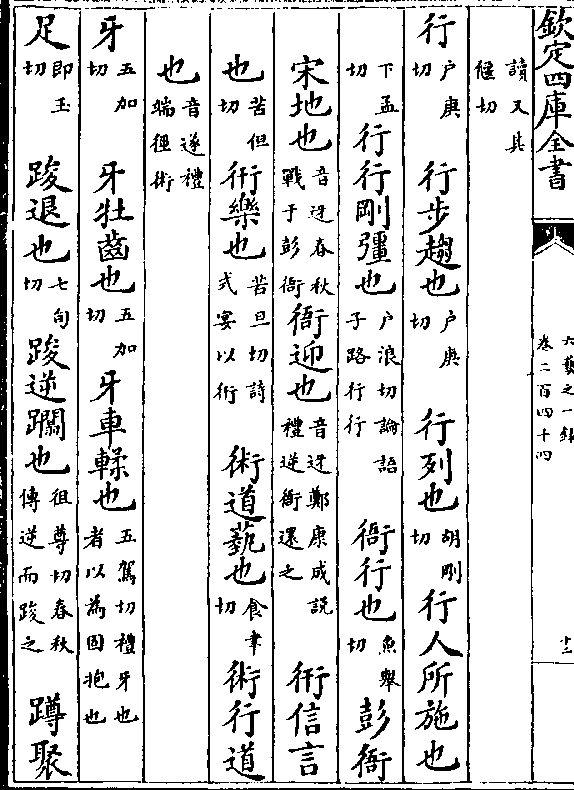 欽定四庫全書
六藝之一錄
卷二百四十四
讀又其偃切
行戶庚切 行步趨也戶庚切 行列也胡剛切 行人所施也
下孟切 行行剛彊也戶浪切論語子路行行 衙行也魚舉切 彭衙
宋地也音迓春秋戰于彭衙 衙迎也音迓鄭康成説禮逆衙還之 衎信言
也苦但切 衎樂也苦旦切詩式宴以衎 術道藝也食聿切 術行道
也音遂禮端徑術
牙五加切 牙牡齒也五加切 牙車輮也五駕切禮牙也者以為固抱也
足即玉切 踆退也七旬切 踆逆躝也徂尊切春秋傳逆而踆之 蹲聚